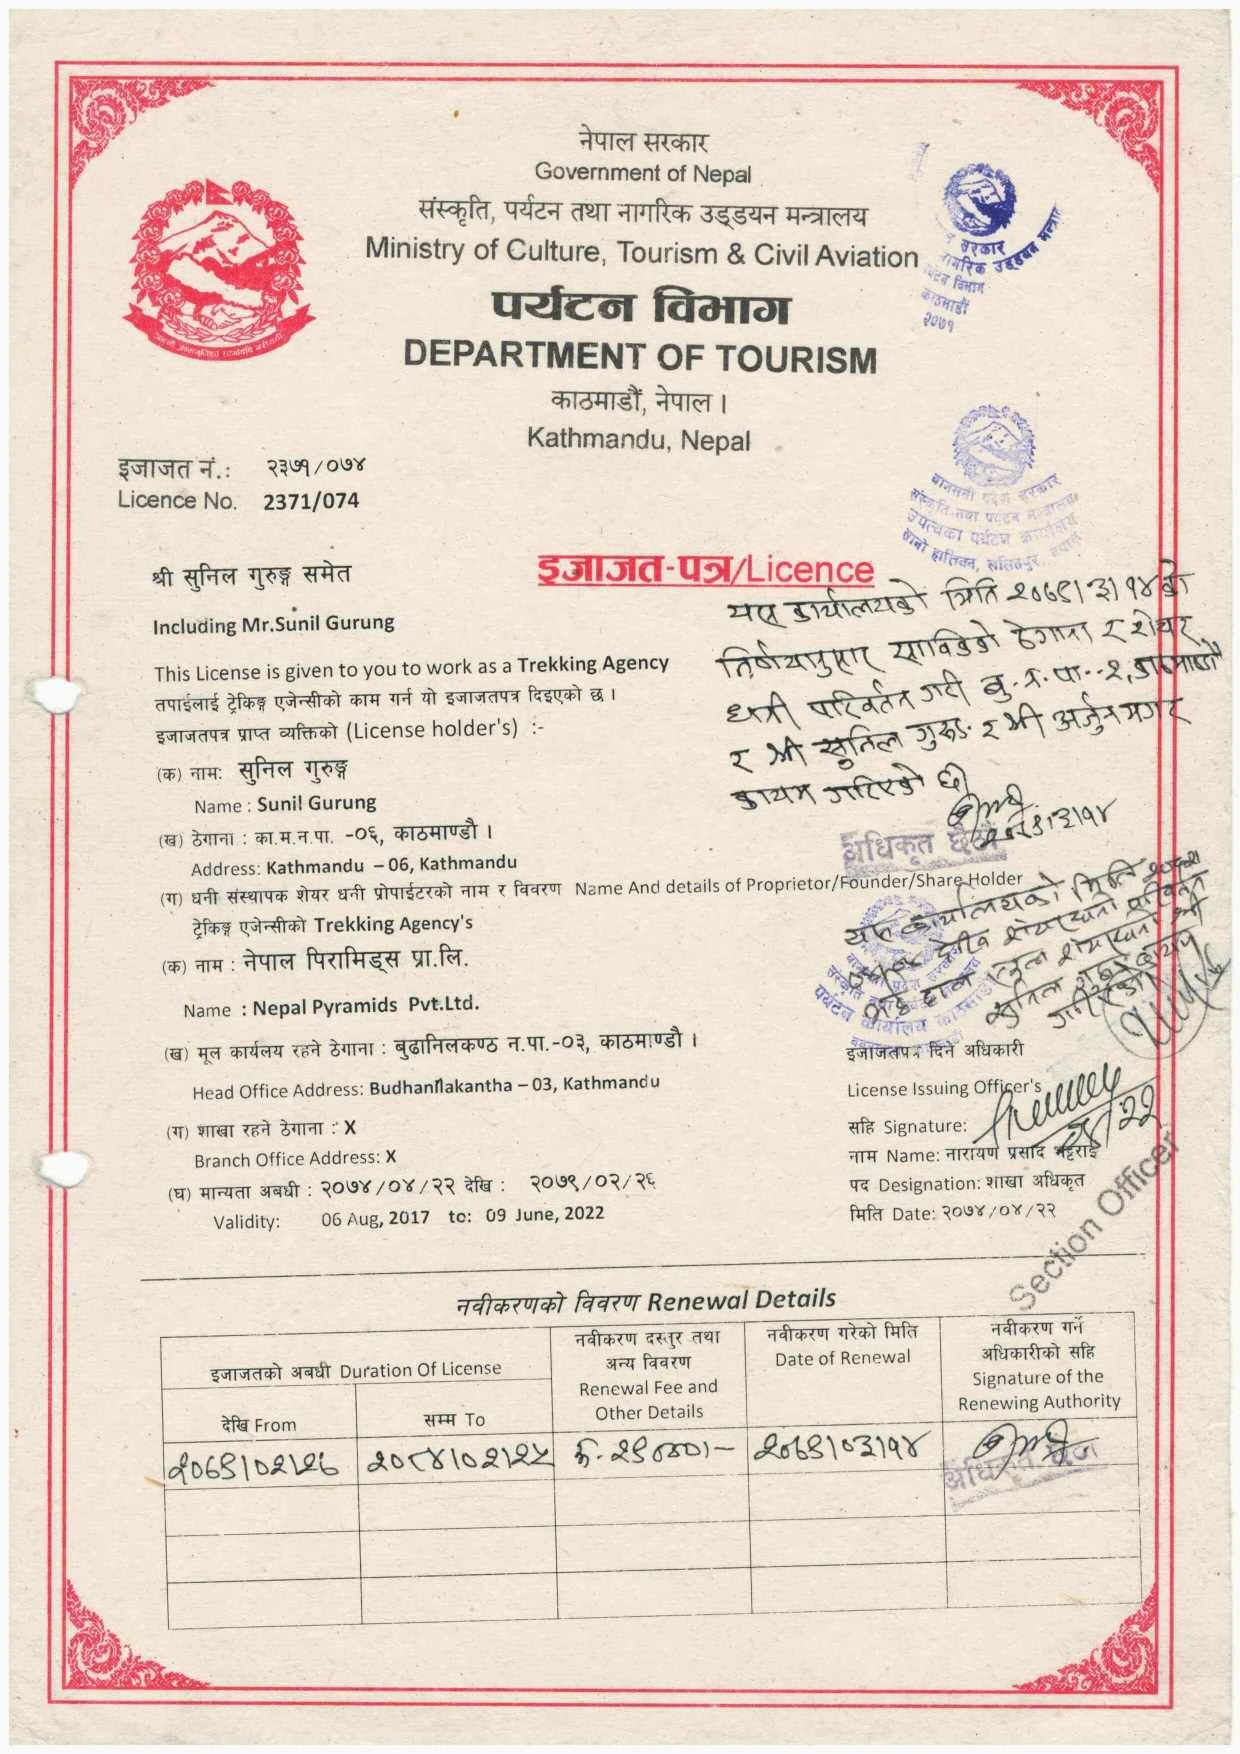 नेपाल सरकार
Government of Nepal
संस्कृति, पर्यटन तथा नागरिक उड्डयन मन्त्रालय
Ministry of Culture, Tourism & Civil Aviation
पर्यटन विभाग
DEPARTMENT OF TOURISM
काठमाडौं, नेपाल ।
Kathmandu, Nepal
सरकार
काठमाडौं
२०७१
इजाजत नं.: २३७१/०७४
Licence No. 2371/074
इजाजत-पत्र/Licence
श्री सुनिल गुरुङ्ग समेत
Including Mr.Sunil Gurung
This License is given to you to work as a Trekking Agency
तपाईलाई ट्रेकिङ्ग एजेन्सीको काम गर्न यो इजाजतपत्र दिइएको छ ।
इजाजतपत्र प्राप्त व्यक्तिको (License holder's) :-
(क) नाम: सुनिल गुरुङ्ग
Name : Sunil Gurung
(ख) ठेगाना : का.म.न.पा. -०६, काठमाण्डौ ।
Address: Kathmandu – 06, Kathmandu
(ग) धनी संस्थापक शेयर धनी प्रोपाईटरको नाम र विवरण Name And details of Proprietor/Founder/Share Holder
ट्रेकिङ्ग एजेन्सीको Trekking Agency's
(क) नाम : नेपाल पिरामिड्स प्रा.लि.
Name : Nepal Pyramids Pvt.Ltd.
(ख) मूल कार्यलय रहने ठेगाना : बुढानिलकण्ठ न.पा.-०३, काठमाण्डौ ।
Head Office Address: Budhanilakantha – 03, Kathmandu
(ग) शाखा रहने ठेगाना : X
Branch Office Address: X
(घ) मान्यता अबधी : २०७४/०४/२२ देखि : २०७९/०२/२६
Validity: 06 Aug, 2017 to: 09 June, 2022
यस कार्यालयको मिति २०७९।३।१४ को
निर्णयानुसार साविकको ठेगाना र शेयर
धनी परिवर्तन गरी बु.न.पा.-२, काठमाण्डौ
र श्री सुनिल गुरुङ र श्री अर्जुन मगर
कायम गरिएको छ।
इजाजतपत्र दिने अधिकारी
License Issuing Officer's
सहि Signature:
नाम Name: नारायण प्रसाद भट्टराई
पद Designation: शाखा अधिकृत
मिति Date: २०७४/०४/२२
Section Officer
नवीकरणको विवरण Renewal Details
इजाजतको अबधी Duration Of License
देखि From
सम्म To
नवीकरण दस्तुर तथा
अन्य विवरण
Renewal Fee and
Other Details
नवीकरण गरेको मिति
Date of Renewal
नवीकरण गर्ने
अधिकारीको सहि
Signature of the
Renewing Authority
२०७९।०२।२६
२०८४।०२।२५
२०७९।०३।१४